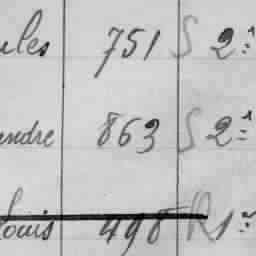 ules 751 S 2=
andre 863 S 2=
Louis 498 R 1=